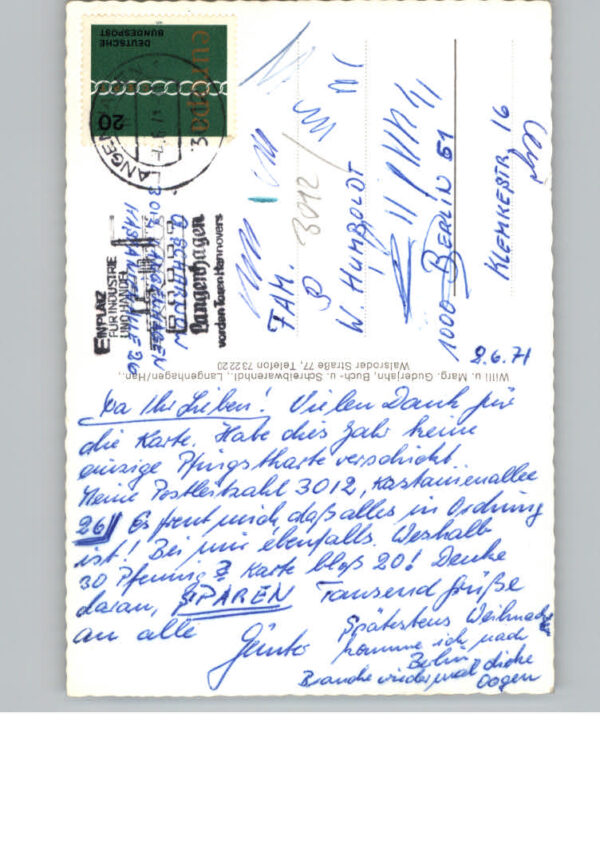 DEUTSCHE
BUNDESPOST
europa
20
EINPLATZ
FÜR INDUSTRIE
UND HANDEL
Langenhagen
vor den Toren Hannovers
3012 LANGENHAGEN
KASTANIENALLEE 26
FAM.
3012
W. HUMBOLDT
1000 BERLIN 51
KLEMKESTR. 16
Willi u. Marg. Guderjahn, Buch- u. Schreibwarenhdl., Langenhagen/Han.,
Walsroder Straße 77, Telefon 73 22 20
8.6.71
Ihr Lieben! Vielen Dank für
die Karte. Habe dies Jahr keine
einzige Pfingstkarte verschickt.
Meine Postleitzahl 3012, Kastanienallee
26 Es freut mich, daß alles in Ordnung
ist! Bei mir ebenfalls. Weshalb
30 Pfennig? Karte bloß 20! Denke
daran, SPAREN Tausend Grüße
an alle Günter
Spätestens Weihnachten
komme ich nach
Berlin
Brauche wieder mal dicke
Oogen